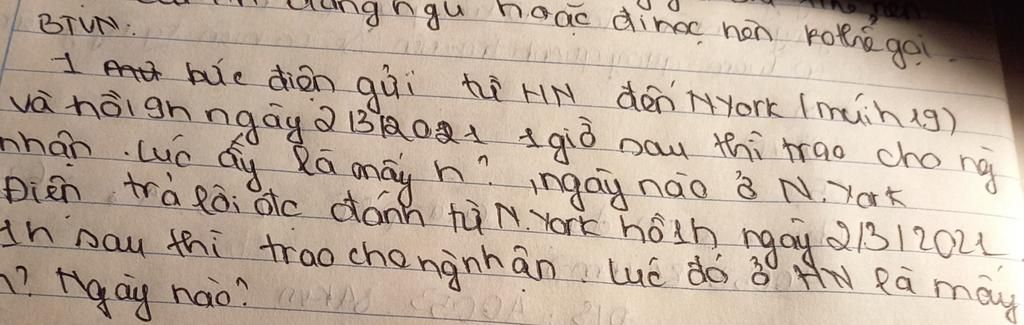 đang ngu hoặc đi học nên ko thể gọi.
BTVN:
1 bức điện gửi từ HN đến N York (múi h 19)
và hồi 9h ngày 2/3/2021 1 giờ sau thì trao cho ng
nhận. Lúc ấy là mấy h?, ngày nào ở N. York
Điện trả lời đc đánh từ N. York hồi 1h ngày 2/3/2021
1h sau thì trao cho ng nhận. Lúc đó ở HN là mấy
h? Ngày nào?